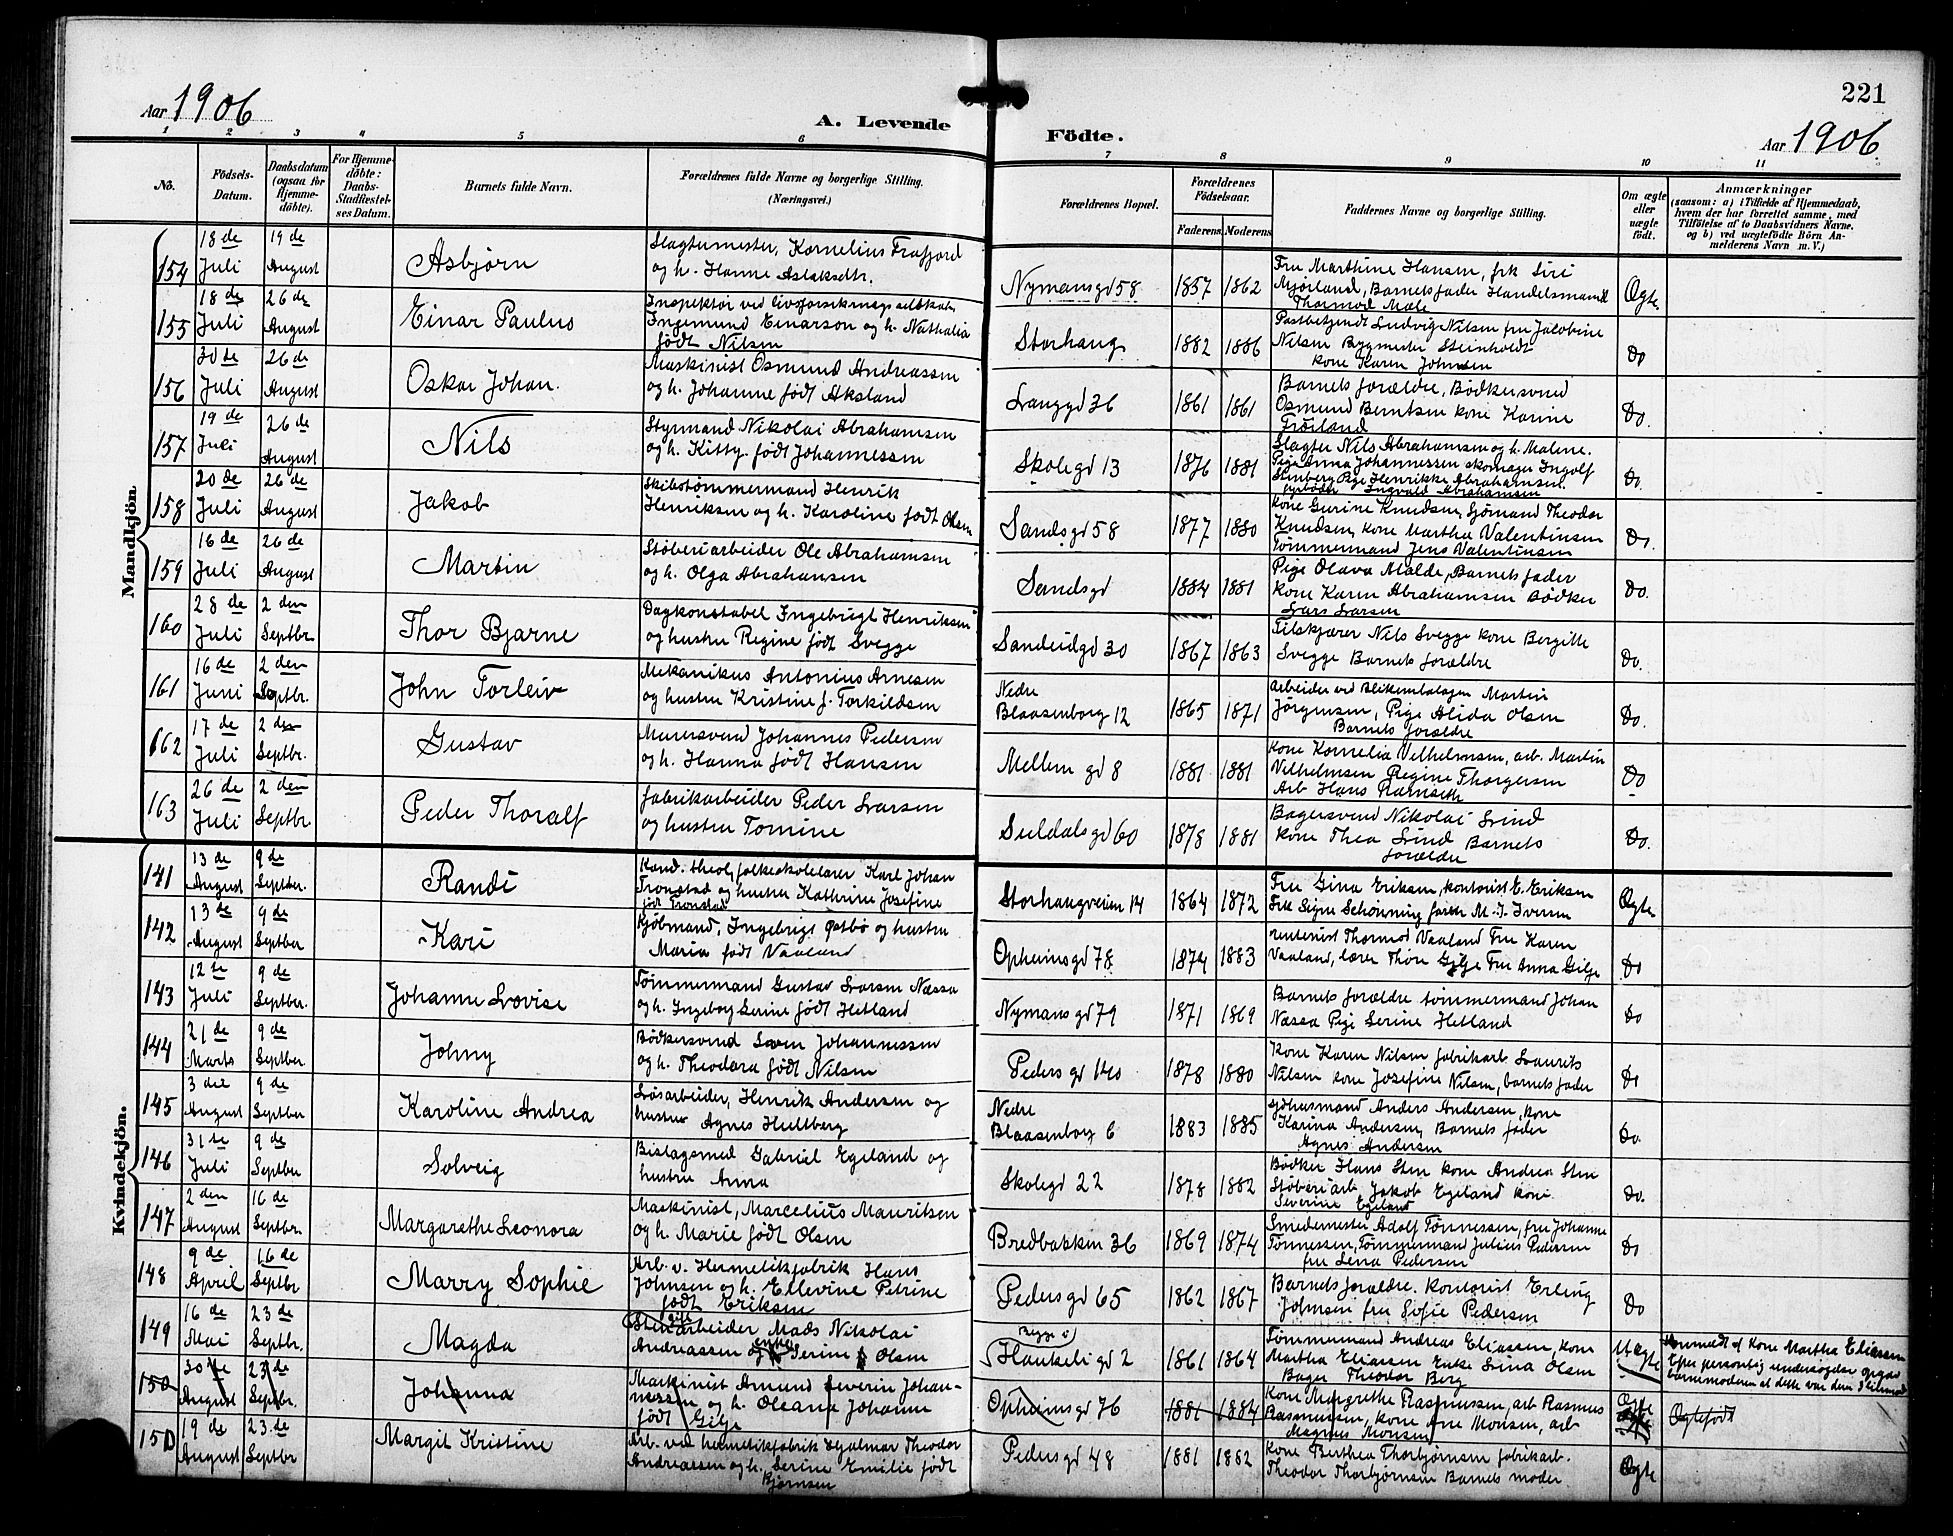 221
Aar 1906
A. Levende Födte.
Aar 1906
1 2 3 4 5 6 7 8 9 10 11
No.
Födsels-
Datum.
Daabsdatum
(ogsaa for
Hjemme-
döbte).
For Hjemme-
döbte:
Daabs-
Stadfæstel-
ses Datum.
Barnets fulde Navn.
Forældrenes fulde Navne og borgerlige Stilling.
(Næringsvei.)
Forældrenes Bopæl.
Forældrenes
Födselsaar.
Faderens. Moderens.
Faddernes Navne og borgerlige Stilling.
Om ægte
eller
uægte
födt.
Anmærkninger
(saasom: a) i Tilfælde af Hjemmedaab,
hvem der har forrettet samme, med
Tilföielse af to Daabsvidners Navne,
og b) ved uægtefödte Börn An-
melderens Navn m. V.)
Mandkjön.
154 18de Juli 19de August Asbjörn
Slagtermester, Kornelius Frafjord
og h. Hanne Aslaksdtr.
Nymansgd 58 1857 1862
Fru Marthine Hansen, frk Siri
Mjörlund, Barnets fader Handelsmand
Thormod Mæle
Ægte
155 18de Juli 26de August Einar Paulus
Inspektör ved livsforsikringsselskab
Ingemund Einarson og h. Nathalia
födt Nilsen
Storhaug 1882 1886
Postbetjendt Ludvig Nilsen fru Jacobine
Nilsen Bygmester Steinholdt
kone Karen Johnsen
Do
156 30te Juli 26de August Oskar Johan.
Maskinist Osmund Andreassen
og h. Johanne födt Aksland
Langgd 36 1861 1861
Barnets forældre, Bödkersvend
Osmund Berntsen kone Karine
Fröiland
Do.
157 19de Juli 26de August Nils
Styrmand Nikolai Abrahamsen
og h. Kitty födt Johannessen
Skolegd 13 1876 1881
Slagter Nils Abrahamsen og h. Malene.
Pige Anna Johannessen skomager Ingolf
Stenberg Pige Henrikke Abrahamsen.
Ingvald Abrahamsen
Do.
158 20de Juli 26de August Jakob
Skibstömmermand Henrik
Henriksen og h. Karoline födt Olsen
Sandsgd 58 1877 1880
Kone Gurine Knudsen, Sjömand Theodor
Knudsen, kone Martha Valentinsen
Tömmermand Jens Valentinsen
Do.
159 16de Juli 26de August Martin
Stöberiarbeider Ole Abrahamsen
og h. Olga Abrahansen
Sandsgd 1884 1881
Pige Olava Malde, Barnets fader
kone Karen Abrahamsen Bödker
Lars Larsen
Do.
160 28de Juli 2den Septbr. Thor Bjarne
Dagkonstabel Ingebrigt Henriksen
og hustru Regine födt Svegge
Sandeidgd 30 1867 1863
Tilskjærer Nils Svegge kone Bergitte
Svegge Barnets forældre
Do.
161 16de Juni 2den Septbr. John Torleiv
Mekanikus Antonius Arnesen
og hustru Kristine f. Torkildsen
Nedre
Blaasenborg 12 1865 1871
Arbeider ved Blikemballagen Martin
Jörgensen, Pige Alida Olsen
Barnets forældre
Do.
162 17de Juli 2den Septbr. Gustav
Murersvend Johannes Pedersen
og h. Hanna födt Hansen
Mellem gd 8 1881 1881
Kone Kornelia Vilhelmsen, arb. Martin
Vilhelmsen Regine Thorgersen
Arb Hans Ramseth
Do
163 26de Juli 2den Septbr. Peder Thoralf
Fabrikarbeider Peder Larsen
og hustru Tomine
Suldalsgd 60 1878 1881
Bagersvend Nikolai Lind
kone Thea Lind Barnets
forældre
Do.
Kvindekjön.
141 13de August 9de Septber. Randi
Kand. theol, folkeskolelærer Karl Johan
Tronstad og hustru Kathrine Josefine
födt Tronstad
Storhaugveien 14 1864 1872
Fru Gina Eriksen, kontorist E. Eriksen
Frk Signe Schönning M. J. Iversen
Ægte
142 13de August 9de Septber Kari
Kjöbmand, Ingebrigt Östbö og hustru
Maria födt Vaaland
Opheimsgd 78 1874 1883
rentenist Thormod Vaaland Fru Karen
Vaaland, lærer Thore Gilje Fru Anna Gilje
Do
143 12te Juli 9de Septber. Johanne Lovise
Tömmermand Gustav Larsen Næssa
og h. Ingeborg Serine födt Hetland
Nymansgd 79 1871 1869
Barnets forældre tömmermand Johan
Næssa Pige Serine Hetland
Do
144 21de Marts 9de Septber. Johny
Bödkersvend Sven Johannessen
og h. Theodora födt Nilsen
Pedersgd 140 1878 1880
Kone Karen Nilsen fabrikarb. Laurits
Nilsen kone Josefine Nilsen, barnets fader
Do
145 3die August 9de Septber Karoline Andrea
Lösarbeider, Henrik Andersen og
hustru Agnes Hultberg
Nedre
Blaasenborg 6 1883 1885
Anders Andersen, kone
Karina Andersen, Barnets fader
Agnes Andersen
Do.
146 31te Juli 9de Septbr Solveig
Beslagsmed Gabriel Egeland og
hustru Anna
Skolegd 22 1878 1882
Bödker Hans Sten kone Andrea Sten
Stöberiarb. Jakob Egeland kone
Severine Egeland
Do.
147 2den August 16de Septbr. Margarethe Leonora
Maskinist, Marcelius Mauritsen
og h. Marie födt Olsen
Bredbakken 36 1869 1874
Smedemester Adolf Tönnessen, fru Johanne
Tönnessen, Tömmermand Julius Pedersen
fru Lena Pedersen
Do
148 9de April 16de Septbr Marry Sophie
Arb. v. Hermetikfabrik Hans
Johnsen og h. Ellevine Petrine
födt Eriksen
Pedersgd 65 1862 1867
Barnets forældre. kontorist Erling
Johnsen fru Sofie Pedersen
Do
149 16de Mai 23de Septbr. Magda
Stenarbeider Mads Nikolai
Andreassen og enke Serine Olsen
Begge i
Haukeligd 2 1861 1864
Tömmermand Andreas Eliassen, kone
Martha Eliassen Enke Lina Olsen
Bager Theodor Berg
Uægte
Anmeldt af Kone Martha Eliassen
Efter personlig undersögelse opgav
barnemoderen at dette var den
150 30te August 23de Septbr. Johanna
Maskinist Amund Severin Johan-
nessen og h. Oleane Johanne
födt Gilje
Opheimsgd 76 1881 1884
Kone Margrethe Rasmussen, arb Rasmus
Rasmussen, kone Ane Monsen, arb
Magnus Monsen
Ægte
Ægtefödt
150 19de August 23de Septbr Margit Kristine
Arb. ved hermetikfabrik Hjalmar Theodor
Andreassen og h. Serine Emilie födt
Bjørnsen
Pedersgd 48 1881 1882
Kone Berthea Thorbjörnsen fabrikarb.
Theodor Thorbjörnsen Barnets moder
Ægte